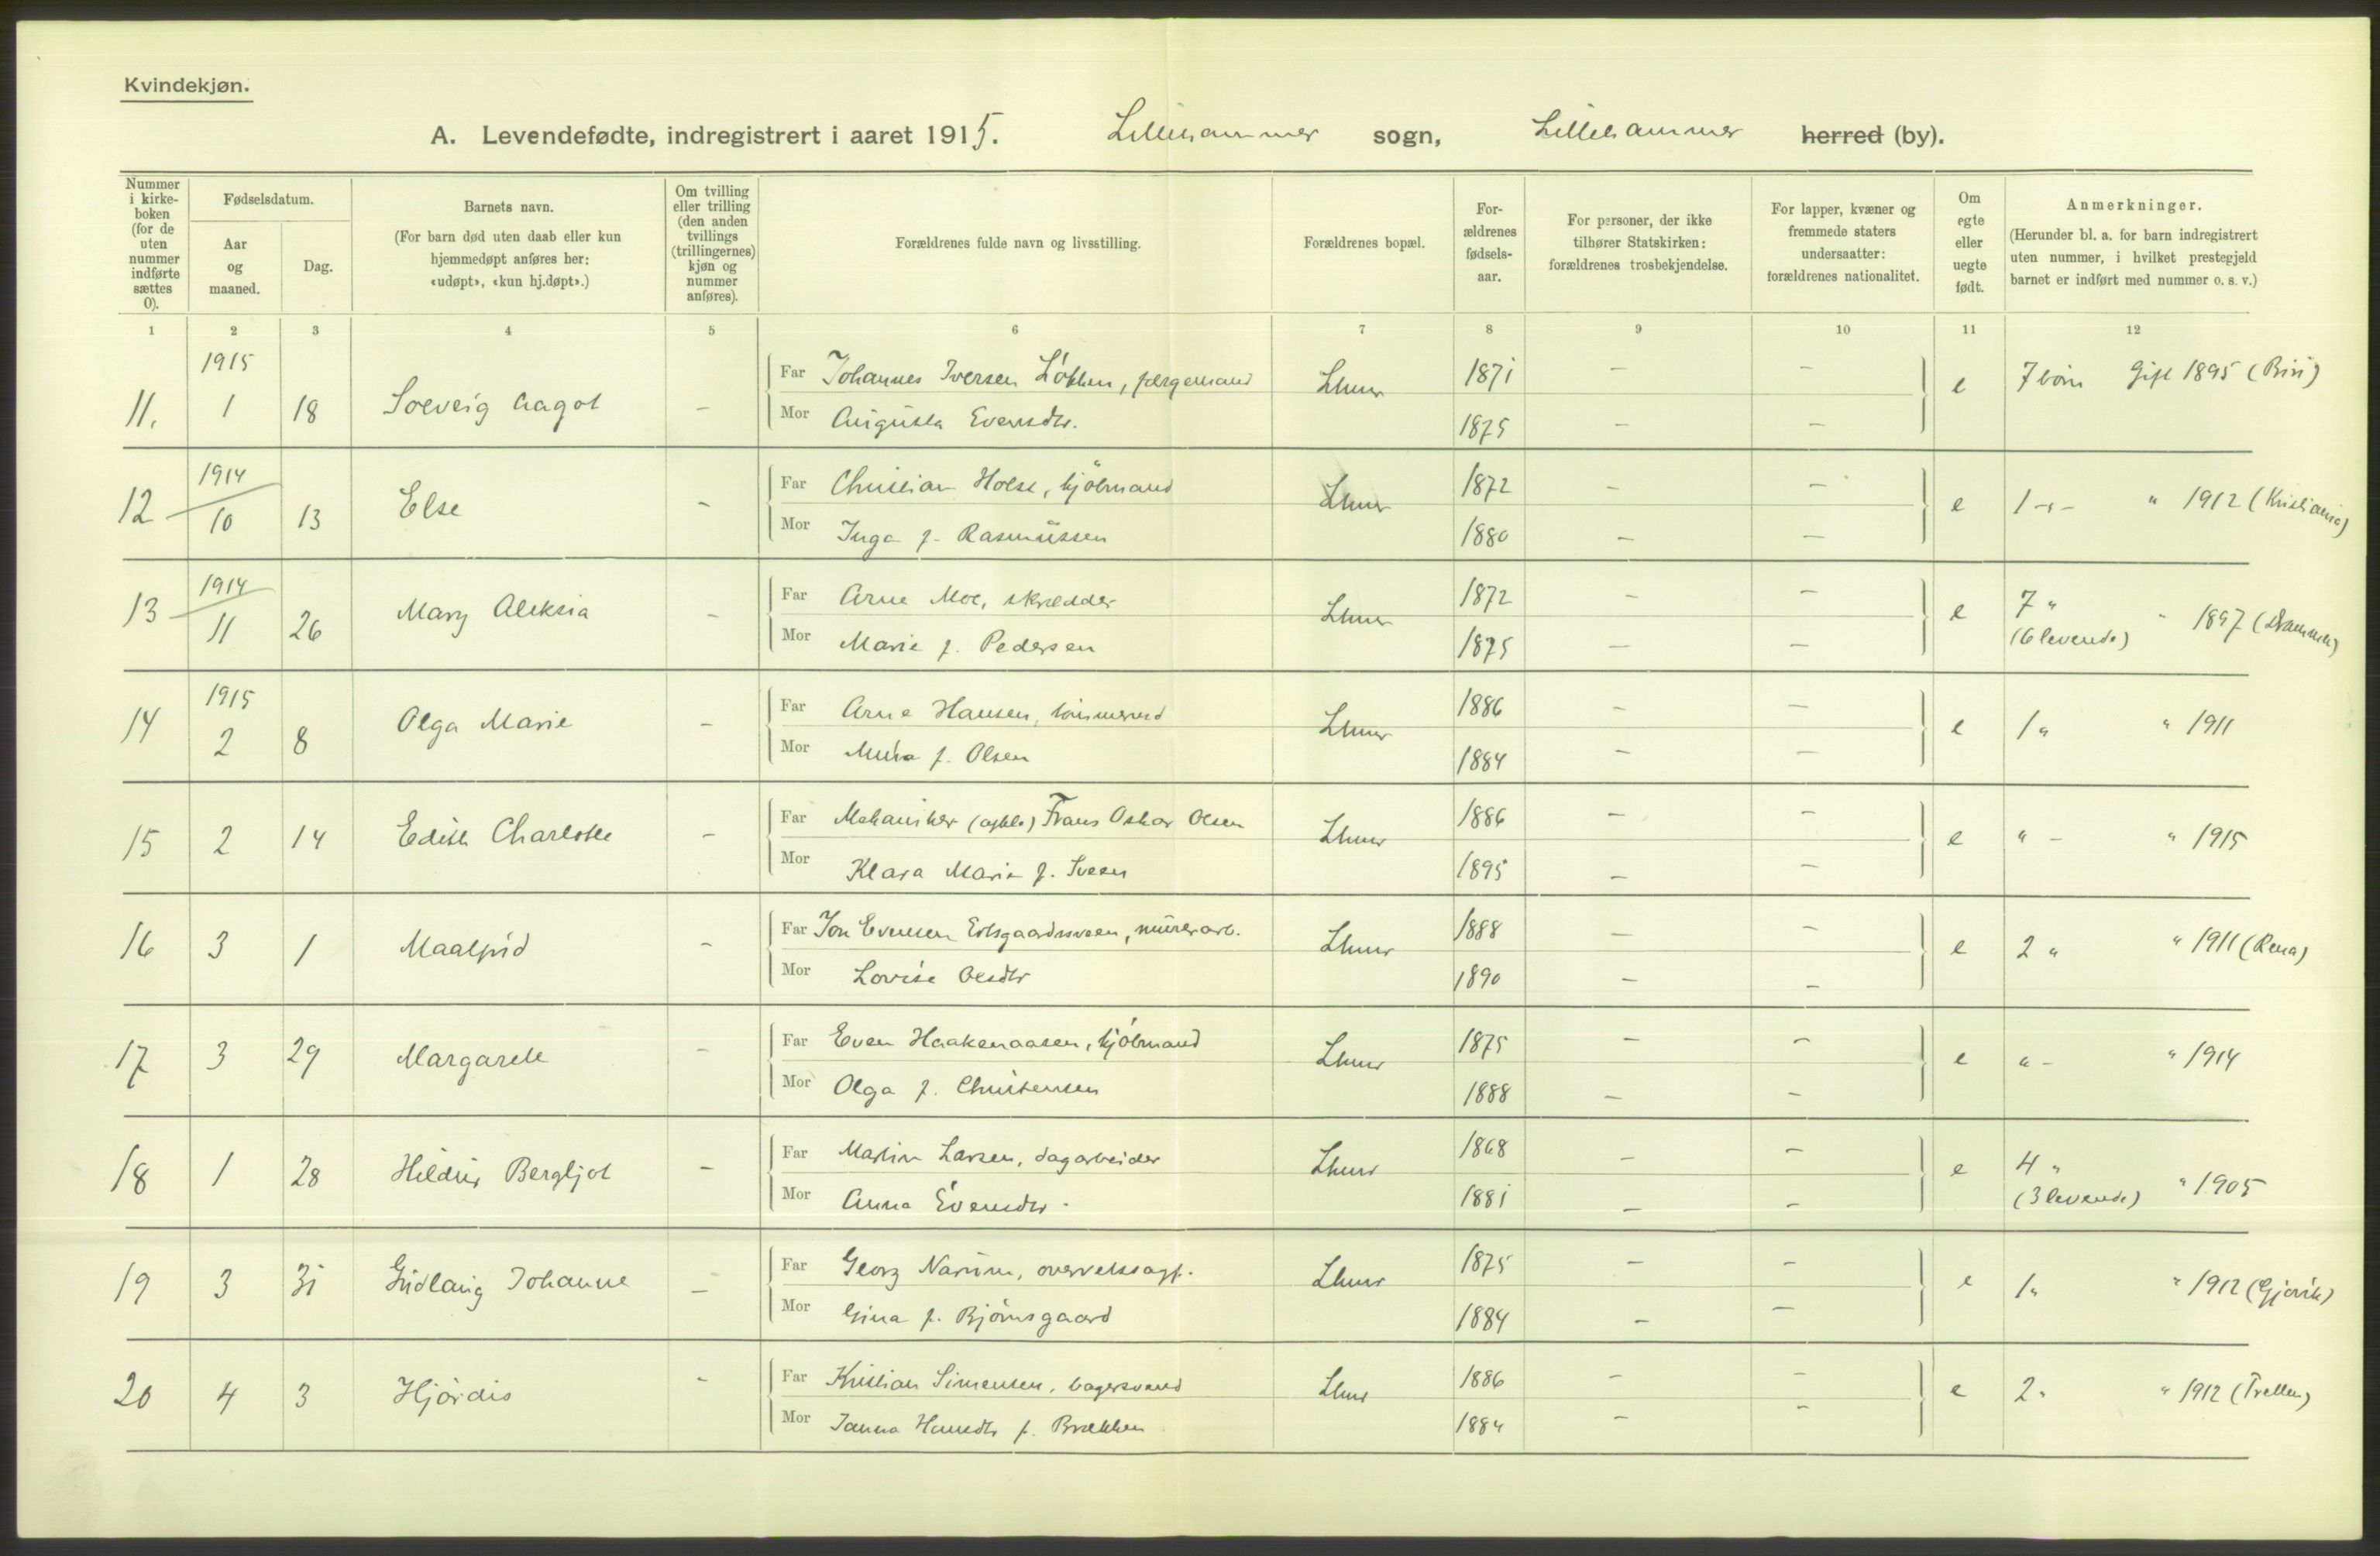 Kvindekjøn.
A. Levendefødte, indregistrert i aaret 1915. Lillehammer sogn, Lillehammer herred (by).
Nummer i kirkeboken (for de uten nummer indførte sættes 0).
Fødselsdatum.
Aar og maaned.
Dag.
Barnets navn.
(For barn død uten daab eller kun hjemmedøpt anføres her: «udøpt», «kun hj.døpt».)
Om tvilling eller trilling (den anden tvillings (trillingernes) kjøn og nummer anføres).
Forældrenes fulde navn og livsstilling.
Forældrenes bopæl.
For-ældrenes fødsels-aar.
For personer, der ikke tilhører Statskirken: forældrenes trosbekjendelse.
For lapper, kvæner og fremmede staters undersaatter: forældrenes nationalitet.
Om egte eller uegte født.
Anmerkninger.
(Herunder bl. a. for barn indregistrert uten nummer, i hvilket prestegjeld barnet er indført med nummer o. s. v.)
1 2 3 4 5 6 7 8 9 10 11 12
1915
11. 1 18 Solveig Aagot – Far Johannes Iversen Løkken, færgemand Lhmr 1871 – – e 7 børn Gift 1895 (Biri)
Mor Augusta Evensdtr. 1875 – –
1914
12 10 13 Else – Far Christian Holst, kjøbmand Lhmr 1872 – – e 1 -"- " 1912 (Kristiania)
Mor Inga f. Rasmussen 1880 – –
1914
13 11 26 Mary Aleksia – Far Arne Moe, skrædder Lhmr 1872 – – e 7 " " 1897 (Drammen)
Mor Marie f. Pedersen 1875 – – (6 levende)
1915
14 2 8 Olga Marie – Far Arne Hansen, tømmermd Lhmr 1886 – – e 1 " " 1911
Mor f. Olsen 1884 – –
15 2 14 Edith Charlotte – Far Mekaniker (cykle) Frans Oskar Olsen Lhmr 1886 – – e " – " 1915
Mor Klara Marie f. 1895 – –
16 3 1 Maalfrid – Far Jon Evensen murerarb. Lhmr 1888 – – e 2 " " 1911 (Rena)
Mor Lovise Olsdtr 1890 – –
17 3 29 Margarete – Far Even Haakenaasen, kjøbmand Lhmr 1875 – – e " – " 1914
Mor Olga f. Christensen 1888 – –
18 1 28 Hildur Bergljot – Far Martin Larsen, dagarbeider Lhmr 1868 – – e 4 "
Mor Anna Evensdtr. 1881 – – (3 levende) " 1905
19 3 31 Gudlaug Johanne – Far Georg Narum, overretssagf. Lhmr 1875 – – e 1 " " 1912 (Gjøvik)
Mor Gina f. Bjørnsgaard 1884 – –
20 4 3 Hjørdis – Far Kristian Simensen, bagersvend Lhmr 1886 – – e 2 " " 1912 (Tretten)
Mor Janna Hansdtr f. Brækken 1884 – –